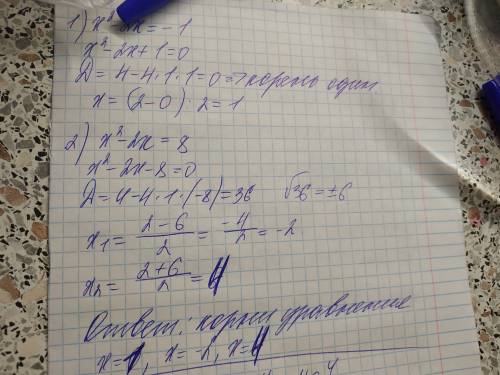 1) x²-2x=-1
x²-2x+1=0
D=4-4·1·1=0=>корень один
x=(2-0):2=1
2) x²-2x=8
x²-2x-8=0
D=4-4·1·(-8)=36 √36=±6
x₁=(2-6)/2=-4/2=-2
x₂=(2+6)/2=4
Ответ: корни уравнения
x=1, x=-2, x=4